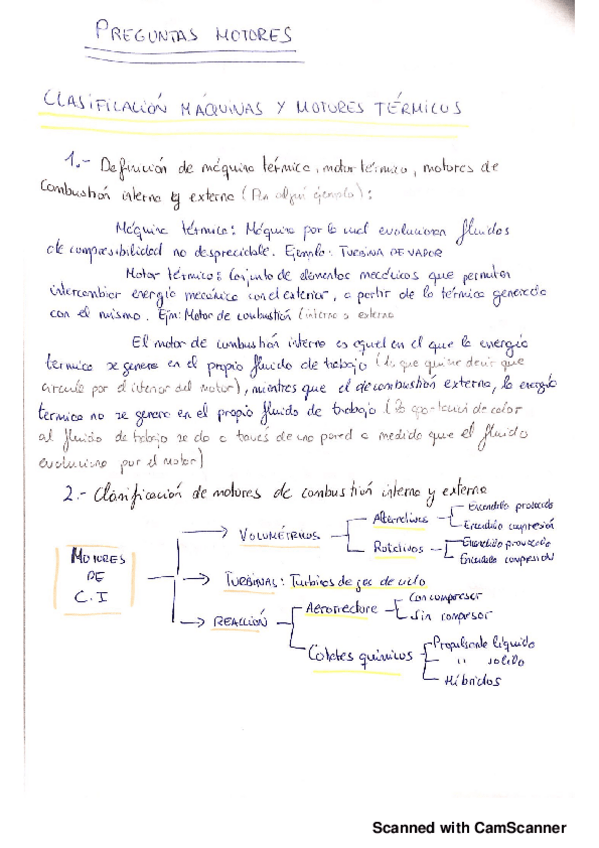 PREGUNTAS MOTORES
CLASIFICACIÓN MÁQUINAS Y MOTORES TÉRMICOS
1.- Definición de máquina térmica, motor térmico, motores de
combustión interna y externa (Pon algún ejemplo):
Máquina térmica: Máquina por la cual evolucionan fluidos
de compresibilidad no despreciable. Ejemplo: TURBINA DE VAPOR
Motor térmico: Conjunto de elementos mecánicos que permiten
intercambiar energía mecánica con el exterior, a partir de la térmica generada
con el mismo. Ejm: Motor de combustión (interna o externa
El motor de combustión interna es aquel en el que la energía
térmica se genera en el propio fluido de trabajo (lo que quiere decir que
circula por el interior del motor), mientras que el de combustión externa, la energía
térmica no se genera en el propio fluido de trabajo (la aportación de calor
al fluido de trabajo se da a través de una pared a medida que el fluido
evoluciona por el motor)
2.- Clasificación de motores de combustión interna y externa
MOTORES DE C.I
VOLUMÉTRICOS
Alternativos
Encendido provocado
Encendido compresión
Rotativos
Encendido provocado
Encendido compresión
TURBINAS: Turbinas de gas de ciclo
REACCIÓN
Aerorreactores
Con compresor
Sin compresor
Cohetes químicos
Propulsante líquido
" sólido
Híbridos
Scanned with CamScanner